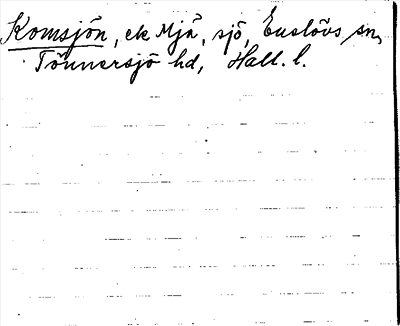 Komsjön, ek Mjä, sjö, Enslövs sn,
Tönnersjö hd, Hall. l.